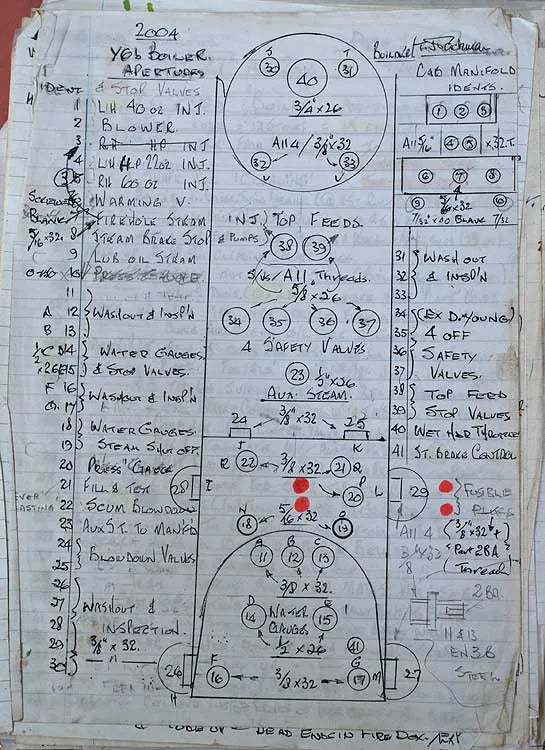 2004
Y6b BOILER.
APERTURES
IDENT & STOP VALVES
1 L/H 40 oz INJ.
2 BLOWER.
3 INJ
4 L/H H.P 22oz INJ.
5 RH 60 oz INJ.
WARMING V.
SCREWED BLANK FIREHOLE STEAM
5/16 x 32. 8 STEAM BRAKE STOP
9 LUB OIL STEAM
10
11
A 12 WASHOUT & INSP'N
B 13
1/2 C D 14 WATER GAUGES
x 26 E 15 & STOP VALVES.
F 16 WASHOUT & INSP'N
G. 17
18 WATER GAUGES.
19 STEAM SHUT OFF.
20 PRESS' GAUGE
21 FILL & TEST
22 SCUM BLOWDOWN
23 AUX ST. TO
24 BLOWDOWN VALVES
25
26
27 WASHOUT &
28 INSPECTION.
29 3/8" x 32.
30 — " —
S T
30 40 31
3/4" x 26
All 4 / 3/8" x 32
32 33
U V
INJ. TOP FEEDS.
& PUMPS 38 39
S/Vs / All Threads.
5/8 x 26
34 35 36 37
4 SAFETY VALVES
23 1/2 x 26.
AUX. STEAM.
24 3/8" x 32 25
J K
R 22 3/8 x 32 21 Q
28 I 20 P L 29
N 18 5/16 x 32 19 O
A B C
11 12 13
3/8 x 32.
D E
14 WATER GAUGES 15
1/2 x 26
41
F G
16 3/8 x 32 17 M
26 27
H
CAB MANIFOLD
IDENTS.
1 2 3
All 5/16" 4 5 x 32 T.
6 7 8
9 5/16 x 32 10
7/32" x 40 BLANK 7/32
31 WASHOUT
32 & INSP'N
33
34 (EX D. YOUNG)
35 4 OFF
36 SAFETY
37 VALVES.
38 TOP FEED
39 STOP VALVES
40 WET HDR THROTTLE
41 ST. BRAKE CONTROL
FUSIBLE
PLUGS
All 4 3/8" x 32
Part 2BA
Thread
2BA
EN36
STEEL
DEAD ENDS IN FIREBOX.